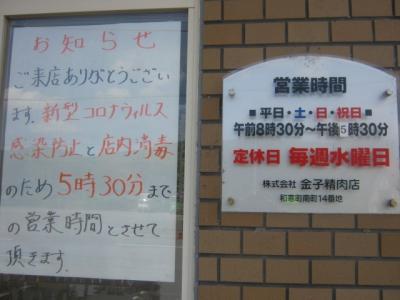 お知らせ
ご来店ありがとうござい
ます。新型コロナウィルス
感染防止と店内消毒
のため5時30分まで
の営業時間とさせて
頂きます。
営業時間
■平日・土・日・祝日■
午前8時30分〜午後5時30分
定休日 毎週水曜日
株式会社 金子精肉店
和恵町南町14番地